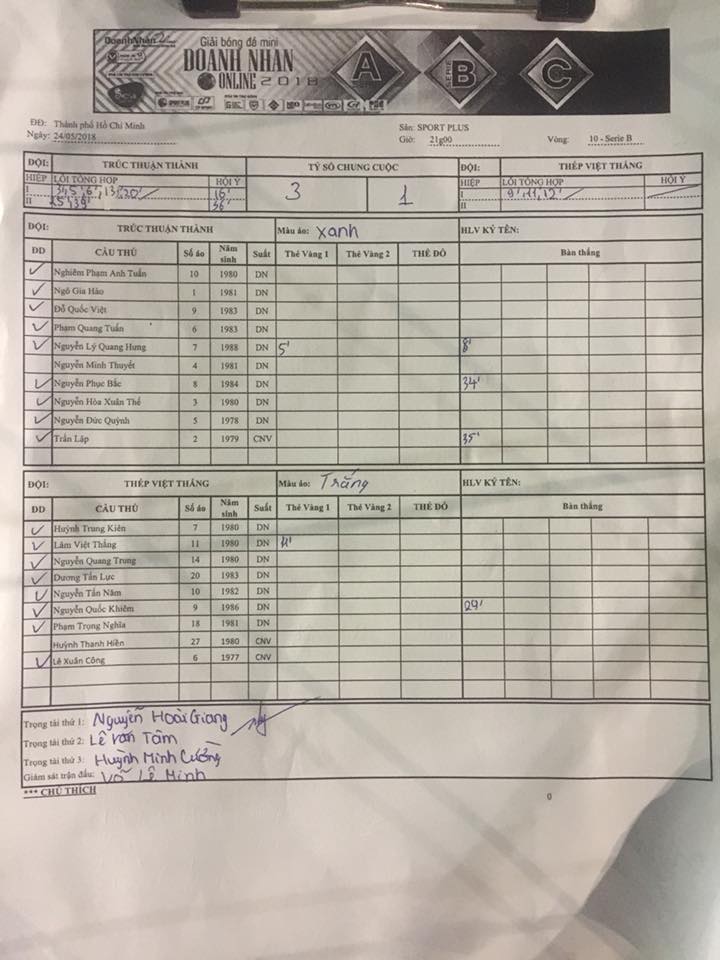 DoanhNhân
Giải bóng đá mini
DOANH NHÂN
ONLINE 2018
A SERIE B C
ĐĐ: Thành phố Hồ Chí Minh Sân: SPORT PLUS
Ngày: 24/05/2018 Giờ: 21g00 Vòng: 10 - Serie B
ĐỘI: TRÚC THUẬN THÀNH TỶ SỐ CHUNG CUỘC ĐỘI: THÉP VIỆT THẮNG
HIỆP LỖI TỔNG HỢP HỘI Ý 3 1 HIỆP LỖI TỔNG HỢP HỘI Ý
I 16' I 9', 11, 12'
II 36' II
ĐỘI: TRÚC THUẬN THÀNH Màu áo: Xanh HLV KÝ TÊN:
DD CẦU THỦ Số áo Năm sinh Suất Thẻ Vàng 1 Thẻ Vàng 2 THẺ ĐỎ Bàn thắng
Nghiêm Phạm Anh Tuấn 10 1980 DN
Ngô Gia Hào 1 1981 DN
Đỗ Quốc Việt 9 1983 DN
Phạm Quang Tuấn 6 1983 DN
Nguyễn Lý Quang Hưng 7 1988 DN 5' 8'
Nguyễn Minh Thuyết 4 1981 DN
Nguyễn Phục Bắc 8 1984 DN 34'
Nguyễn Hòa Xuân Thế 3 1980 DN
Nguyễn Đức Quỳnh 5 1978 DN
Trần Lập 2 1979 CNV 35'
ĐỘI: THÉP VIỆT THẮNG Màu áo: Trắng HLV KÝ TÊN:
DD CẦU THỦ Số áo Năm sinh Suất Thẻ Vàng 1 Thẻ Vàng 2 THẺ ĐỎ Bàn thắng
Huỳnh Trung Kiên 7 1980 DN
Lâm Việt Thắng 11 1980 DN
Nguyễn Quang Trung 14 1980 DN
Dương Tấn Lực 20 1983 DN
Nguyễn Tấn Năm 10 1982 DN
Nguyễn Quốc Khiêm 9 1986 DN 29'
Phạm Trọng Nghĩa 18 1981 DN
Huỳnh Thanh Hiền 27 1980 CNV
Lê Xuân Công 6 1977 CNV
Trọng tài thứ 1: Nguyễn Hoài Giang
Trọng tài thứ 2: Lê Văn Tâm
Trọng tài thứ 3: Huỳnh Minh Cường
Giám sát trận đấu: Võ Lê Minh
*** CHÚ THÍCH
0